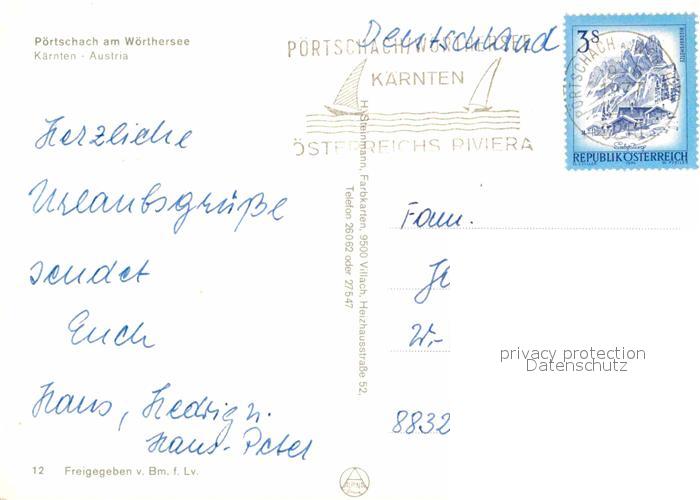 Pörtschach am Wörthersee
Kärnten - Austria
Herzliche
Urlaubsgrüße
sendet
Euch
Hans, Hedwig u.
Hans-Peter
12 Freigegeben v. Bm. f. Lv.
H. Steinmann, Farbkarten, 9500 Villach, Heizhausstraße 52,
Telefon 26062 oder 27547
Deutschland
PÖRTSCHACH/WÖRTHERSEE
KÄRNTEN
ÖSTERREICHS RIVIERA
3S
PÖRTSCHACH
REPUBLIK ÖSTERREICH
Fam.
W.-
8832
privacy protection
Datenschutz